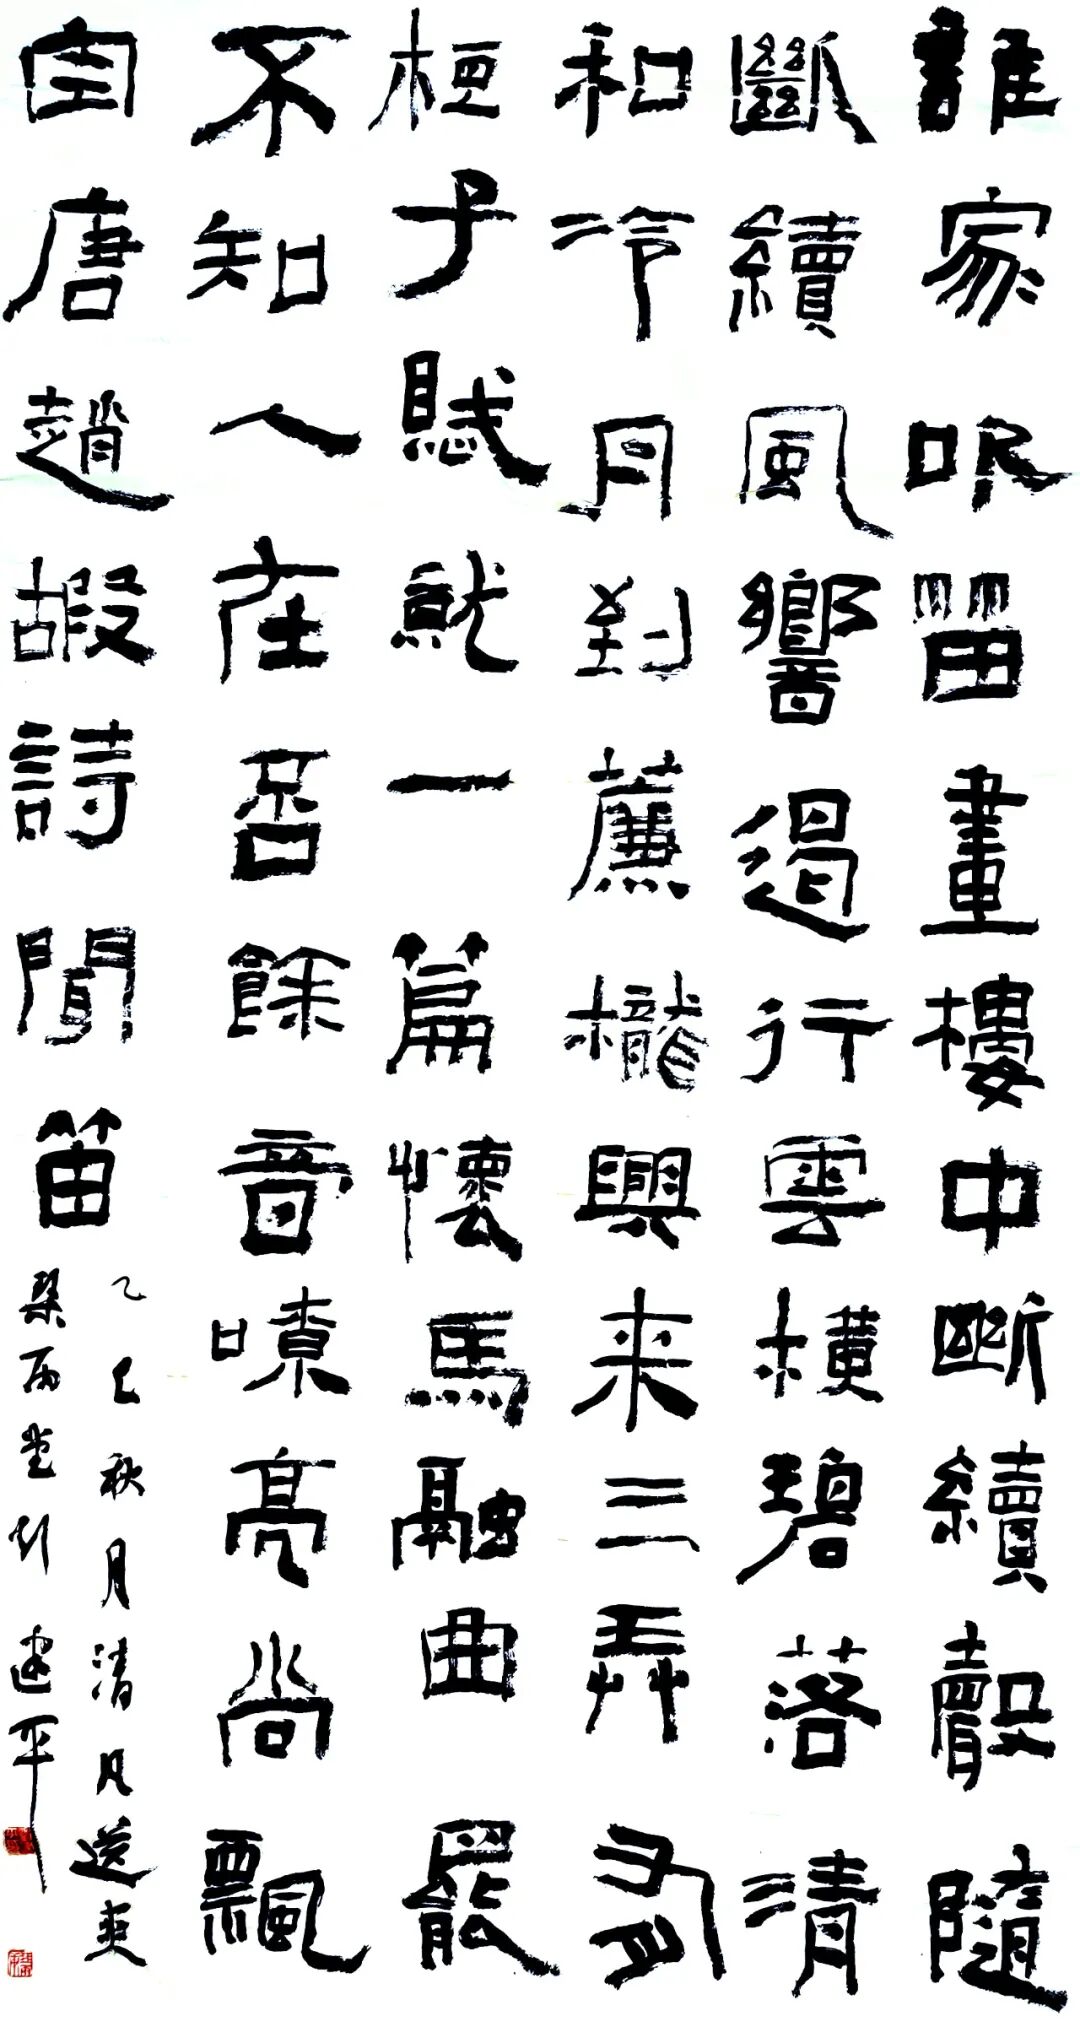 誰家吹笛畫樓中斷續聲隨
斷續風響遏行雲橫碧落清
和冷月到薕櫳興来三弄有
桓子賦就一篇懷馬融曲罷
不知人在否餘音嘹亮尚飄
空唐趙嘏詩聞笛
乙巳秋月清风送爽
琹雨堂刘建平